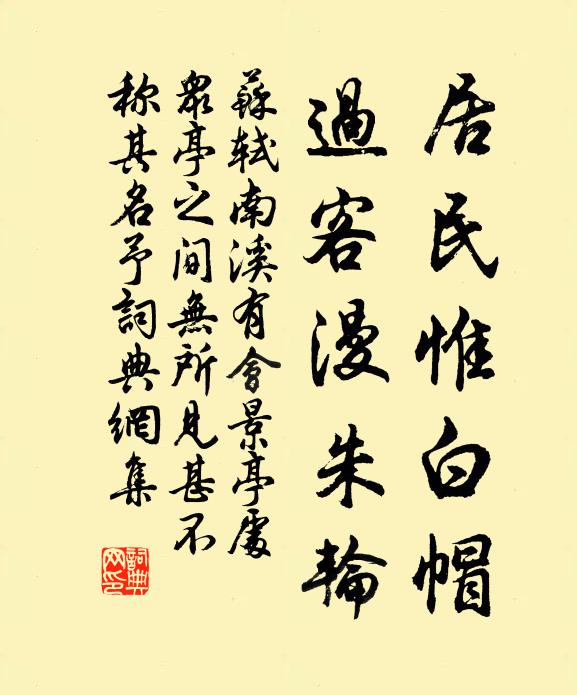 居民惟白帽
過客漫朱輪
蘇軾南溪有會景亭處
眾亭之間無所見甚不
称其名予詞典網集
詞典网印